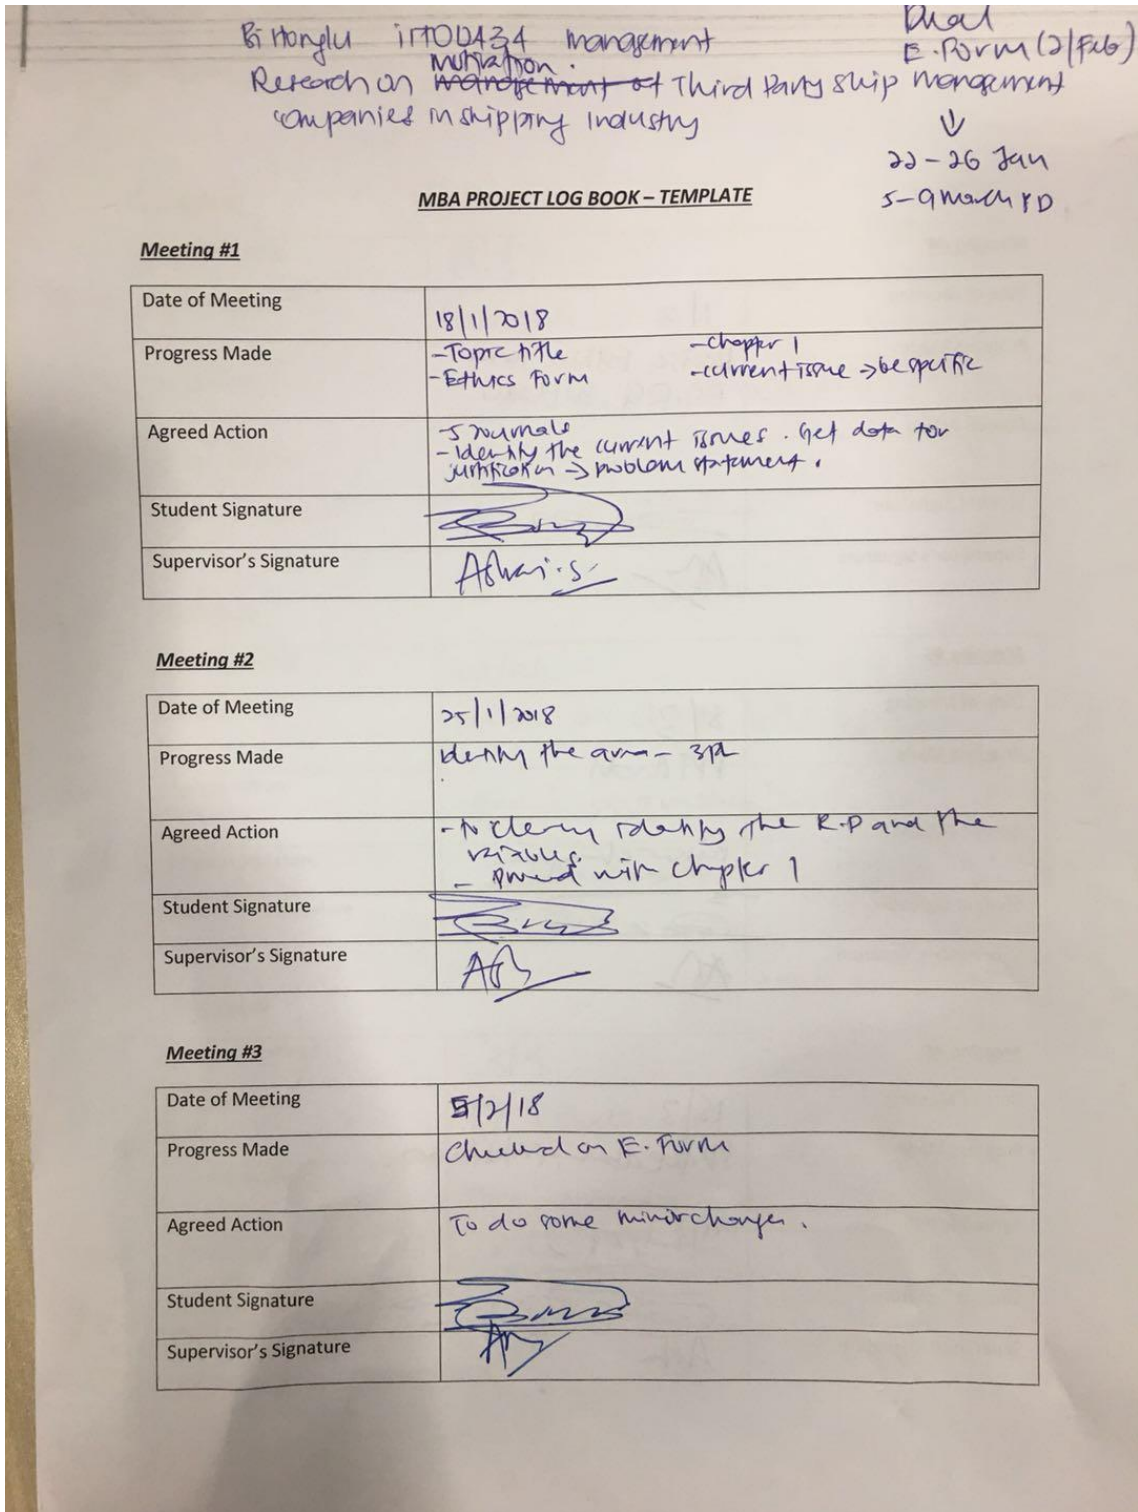 Bi Honglu i17001434 management
Dual
E. Form (2/Feb)
motivation.
Research on management of Third Party ship management
companies in shipping industry
22-26 Jan
5-9 March
MBA PROJECT LOG BOOK – TEMPLATE
Meeting #1
Date of Meeting
18/1/2018
Progress Made
-Topic title -chapter 1
-Ethics Form -current issue → be specific
Agreed Action
-5 Journals
-Identify the current issues. Get data for
justification → problem statement.
Student Signature
Supervisor's Signature
Meeting #2
Date of Meeting
25/1/2018
Progress Made
Identify the area - 3PL
Agreed Action
- To clearly identify the R.P and the
variables.
- Proceed with chapter 1
Student Signature
Supervisor's Signature
Meeting #3
Date of Meeting
5/2/18
Progress Made
Checked on E. Form
Agreed Action
To do some minor changes.
Student Signature
Supervisor's Signature